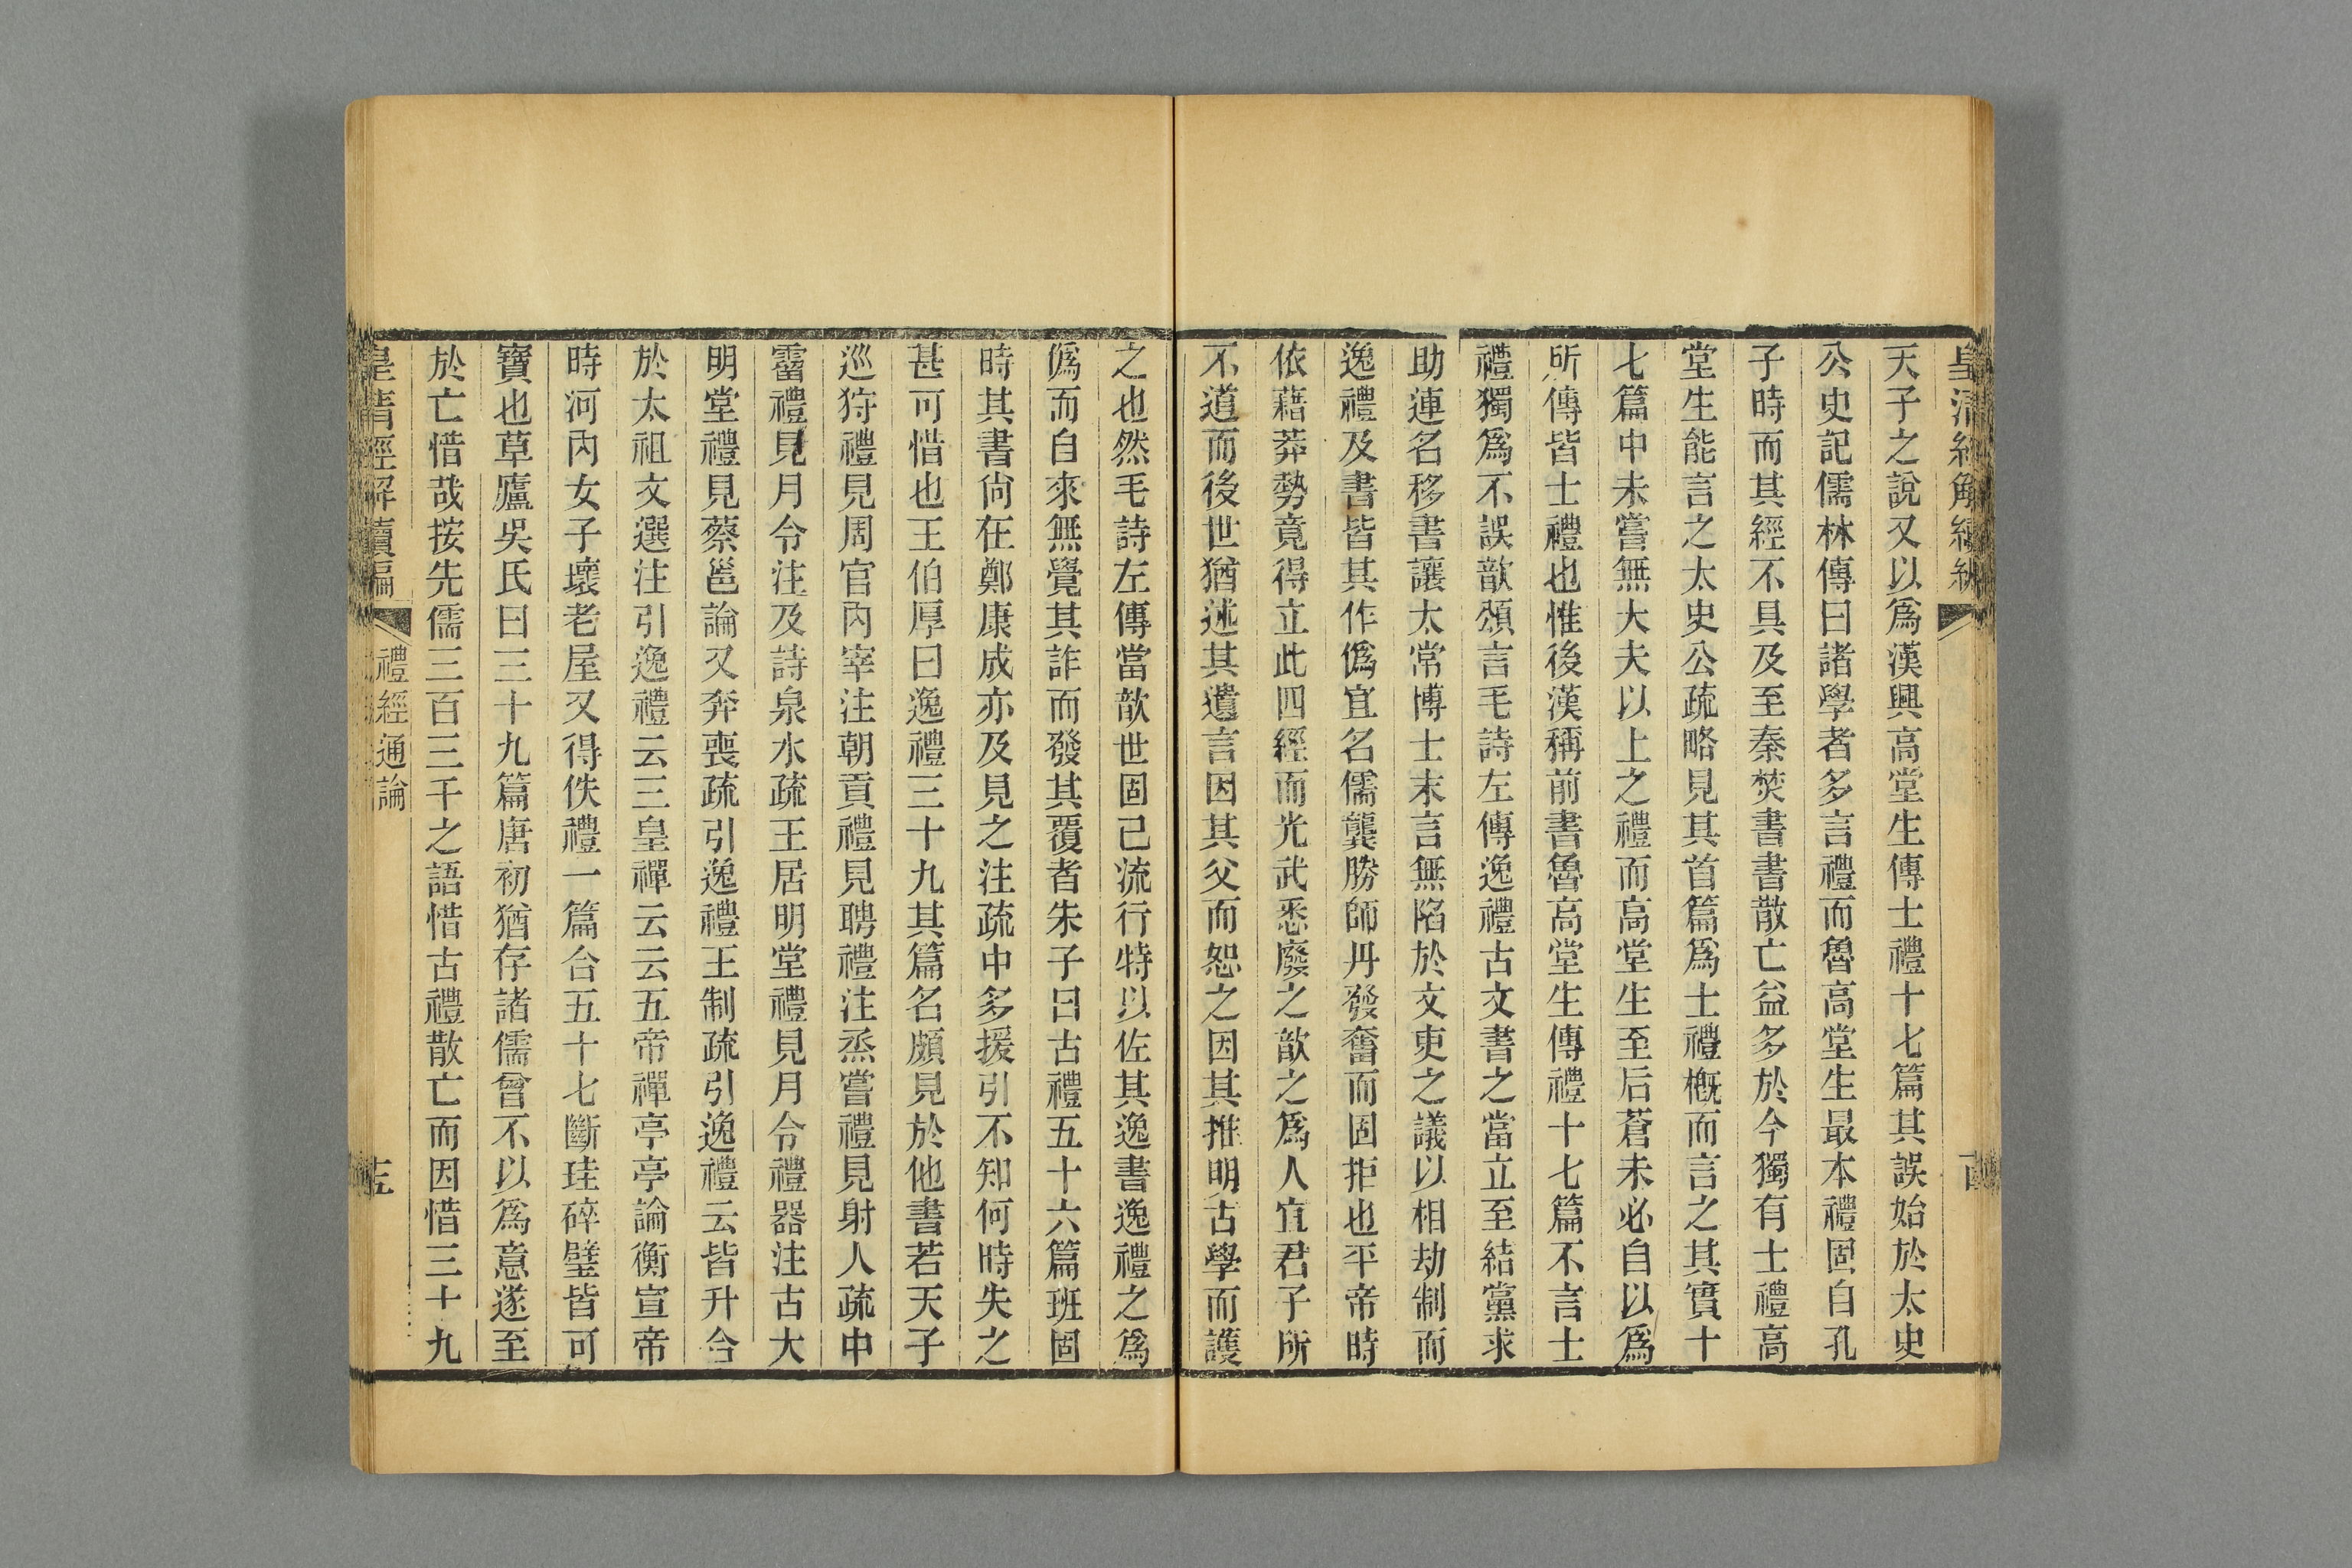 皇清經解續編
天子之說又以爲漢興高堂生傳士禮十七篇其誤始於太史
公史記儒林傳曰諸學者多言禮而魯高堂生最本禮固自孔
子時而其經不具及至秦焚書書散亡益多於今獨有士禮高
堂生能言之太史公疏略見其首篇爲士禮槪而言之其實十
七篇中未嘗無大夫以上之禮而高堂生至后蒼未必自以爲
所傳皆士禮也惟後漢稱前書魯高堂生傳禮十七篇不言士
禮獨爲不誤歆頌言毛詩左傳逸禮古文書之當立至結黨求
助連名移書讓太常博士末言無陷於文吏之議以相劫制而
逸禮及書皆其作僞宜名儒龔勝師丹發奮而固拒也平帝時
依藉莽勢竟得立此四經而光武悉廢之歆之爲人宜君子所
不道而後世猶述其遺言因其父而恕之因其推明古學而護
之也然毛詩左傳當歆世固己流行特以佐其逸書逸禮之爲
僞而自來無覺其詐而發其覆者朱子曰古禮五十六篇班固
時其書尙在鄭康成亦及見之注疏中多援引不知何時失之
甚可惜也王伯厚曰逸禮三十九其篇名頗見於他書若天子
巡狩禮見周官內宰注朝貢禮見聘禮注烝嘗禮見射人疏中
霤禮見月令注及詩泉水疏王居明堂禮見月令禮器注古大
明堂禮見蔡邕論又奔喪疏引逸禮王制疏引逸禮云皆升合
於太祖文選注引逸禮云三皇禪云云五帝禪亭亭論衡宣帝
時河內女子壞老屋又得佚禮一篇合五十七斷珪碎璧皆可
寶也草廬吳氏曰三十九篇唐初猶存諸儒曾不以爲意遂至
於亡惜哉按先儒三百三千之語惜古禮散亡而因惜三十九
皇清經解續編
禮經通論